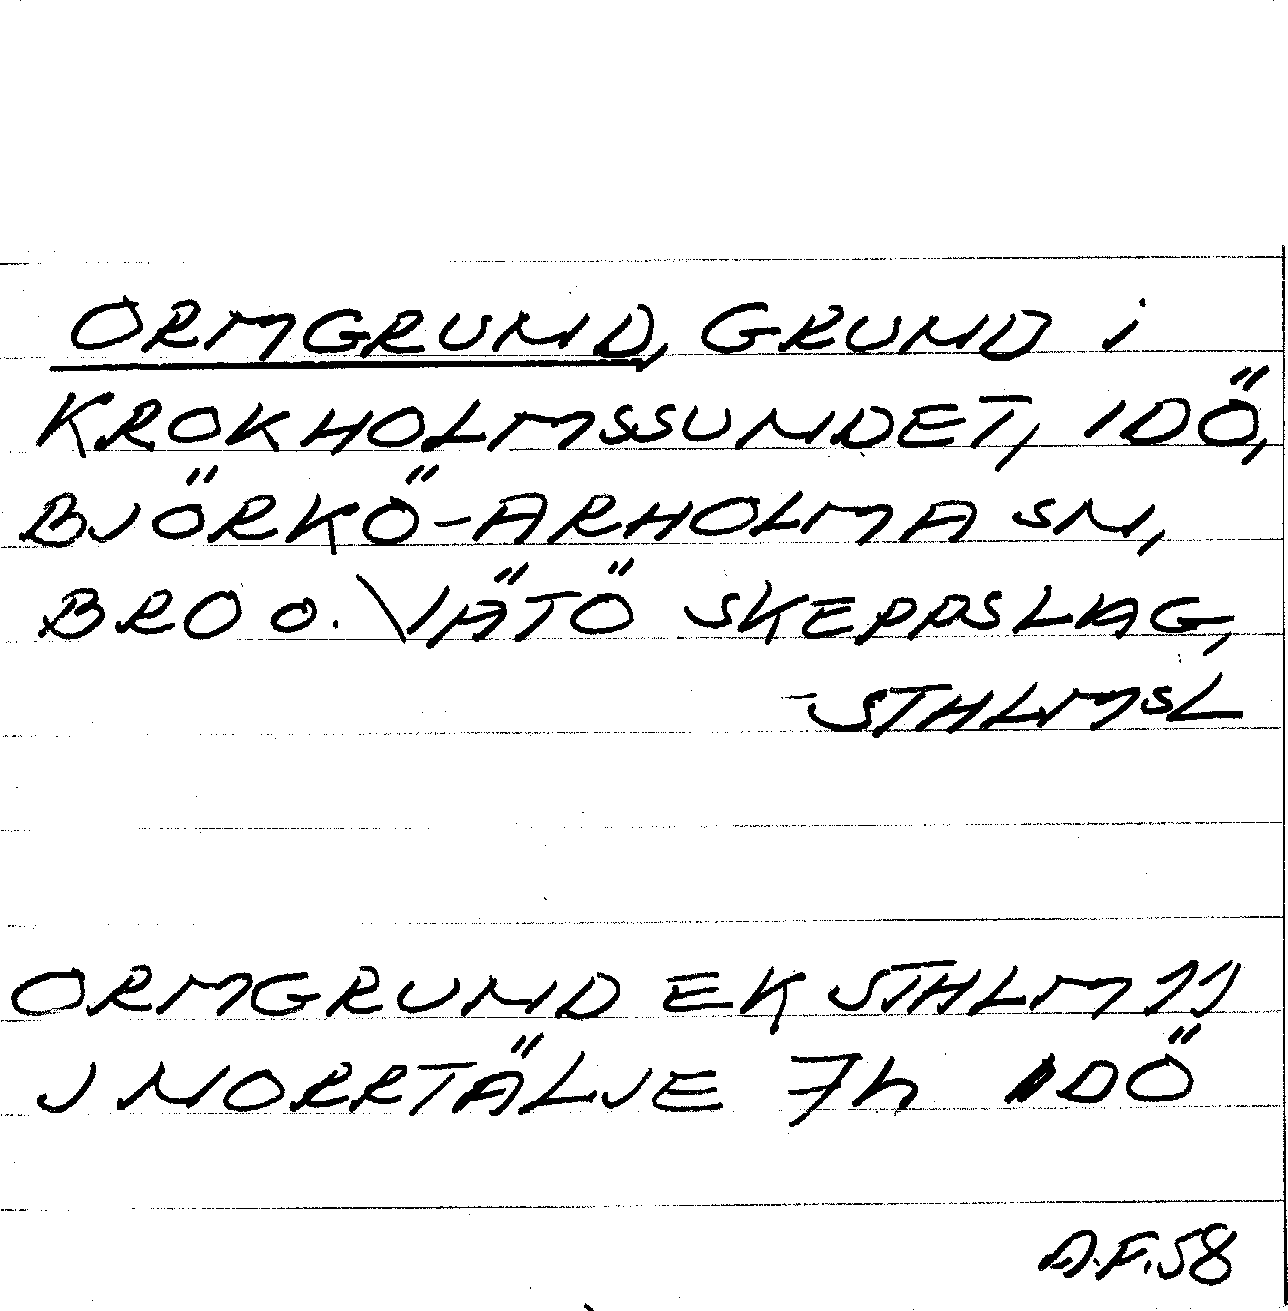 ORMGRUND, GRUND i
KROKHOLMSSUNDET, IDÖ,
BJÖRKÖ-ARHOLMA SN,
BRO o. VÄTÖ SKEPPSLAG,
STHLMSL
ORMGRUND EK STHLM 11
J NORRTÄLJE 7h IDÖ
A.F.58